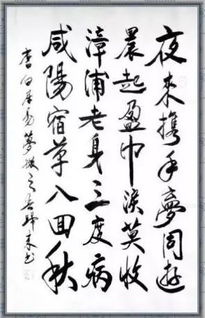 夜来携手夢同遊
晨起盈巾淚莫收
漳浦老身三度病
咸陽宿草八回秋
白居易夢微之